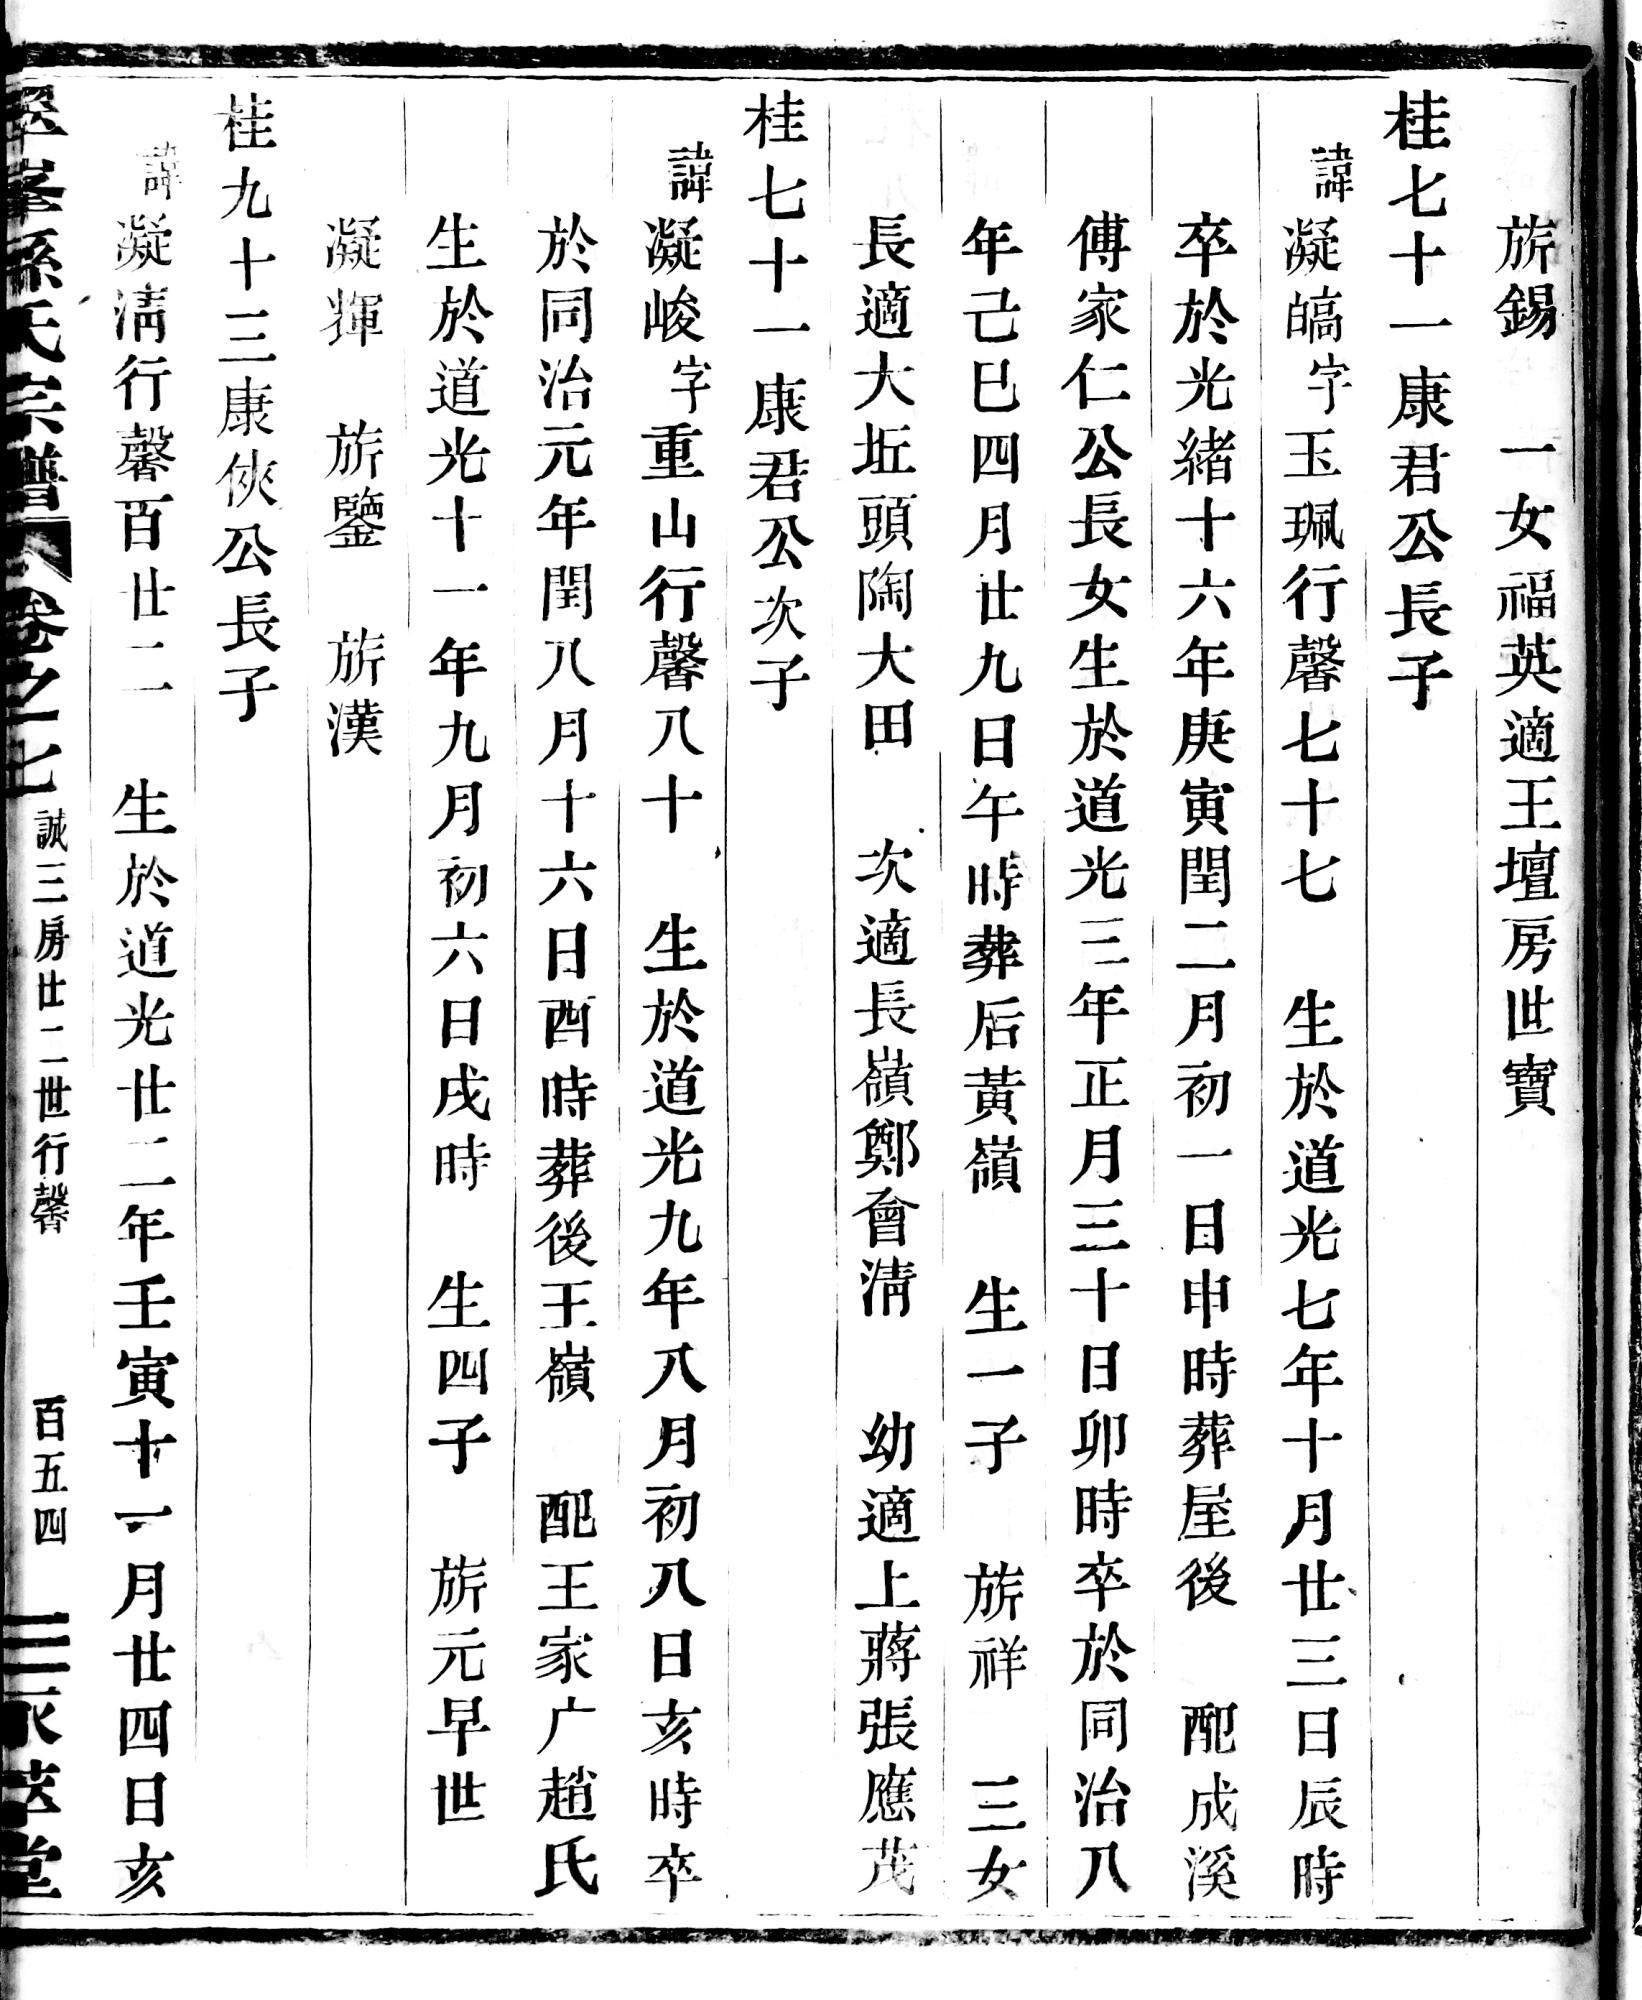 旂錫　一女福英適王壇房世寶
桂七十一康君公長子
諱凝皜字玉珮行馨七十七　生於道光七年十月廿三日辰時
卒於光緒十六年庚寅閏二月初一日申時葬屋後　配成溪
傅家仁公長女生於道光三年正月三十日卯時卒於同治八
年己巳四月廿九日午時葬后黃嶺　生一子　旂祥　三女
長適大坵頭陶大田　次適長嶺鄭會淸　幼適上蔣張應茂
桂七十一康君公次子
諱凝峻字重山行馨八十　生於道光九年八月初八日亥時卒
於同治元年閏八月十六日酉時葬後王嶺　配王家广趙氏
生於道光十一年九月初六日戌時　生四子　旂元早世
凝輝　旂鑒　旂漢
桂九十三康俠公長子
諱凝淸行馨百廿二　生於道光廿二年壬寅十一月廿四日亥
峯孫氏宗譜　卷之七　誠三房廿二世行馨　百五四　萃堂